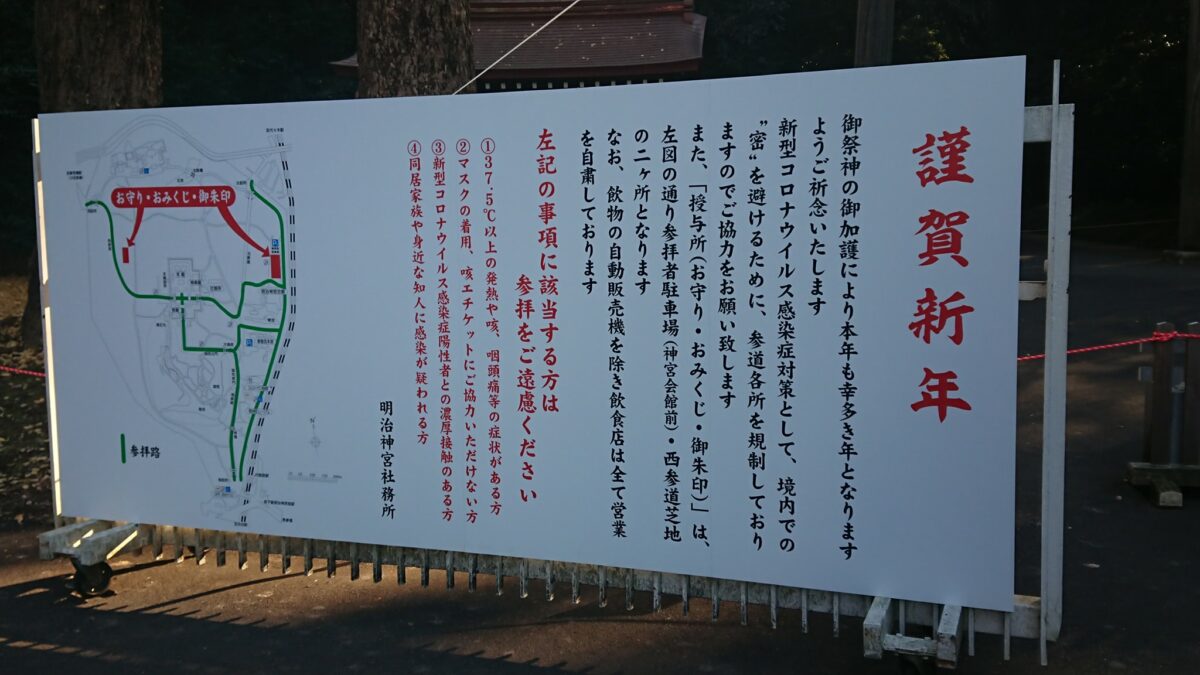 謹賀新年
御祭神の御加護により本年も幸多き年となります
ようご祈念いたします
新型コロナウイルス感染症対策として、境内での
〝密〟を避けるために、参道各所を規制しており
ますのでご協力をお願い致します
また、「授与所(お守り・おみくじ・御朱印)」は、
左図の通り参拝者駐車場(神宮会館前)・西参道芝地
の二ヶ所となります
なお、飲物の自動販売機を除き飲食店は全て営業
を自粛しております
左記の事項に該当する方は
参拝をご遠慮ください
①37.5℃以上の発熱や咳、咽頭痛等の症状がある方
②マスクの着用、咳エチケットにご協力いただけない方
③新型コロナウイルス感染症陽性者との濃厚接触のある方
④同居家族や身近な知人に感染が疑われる方
明治神宮社務所
お守り・おみくじ・御朱印
参拝路